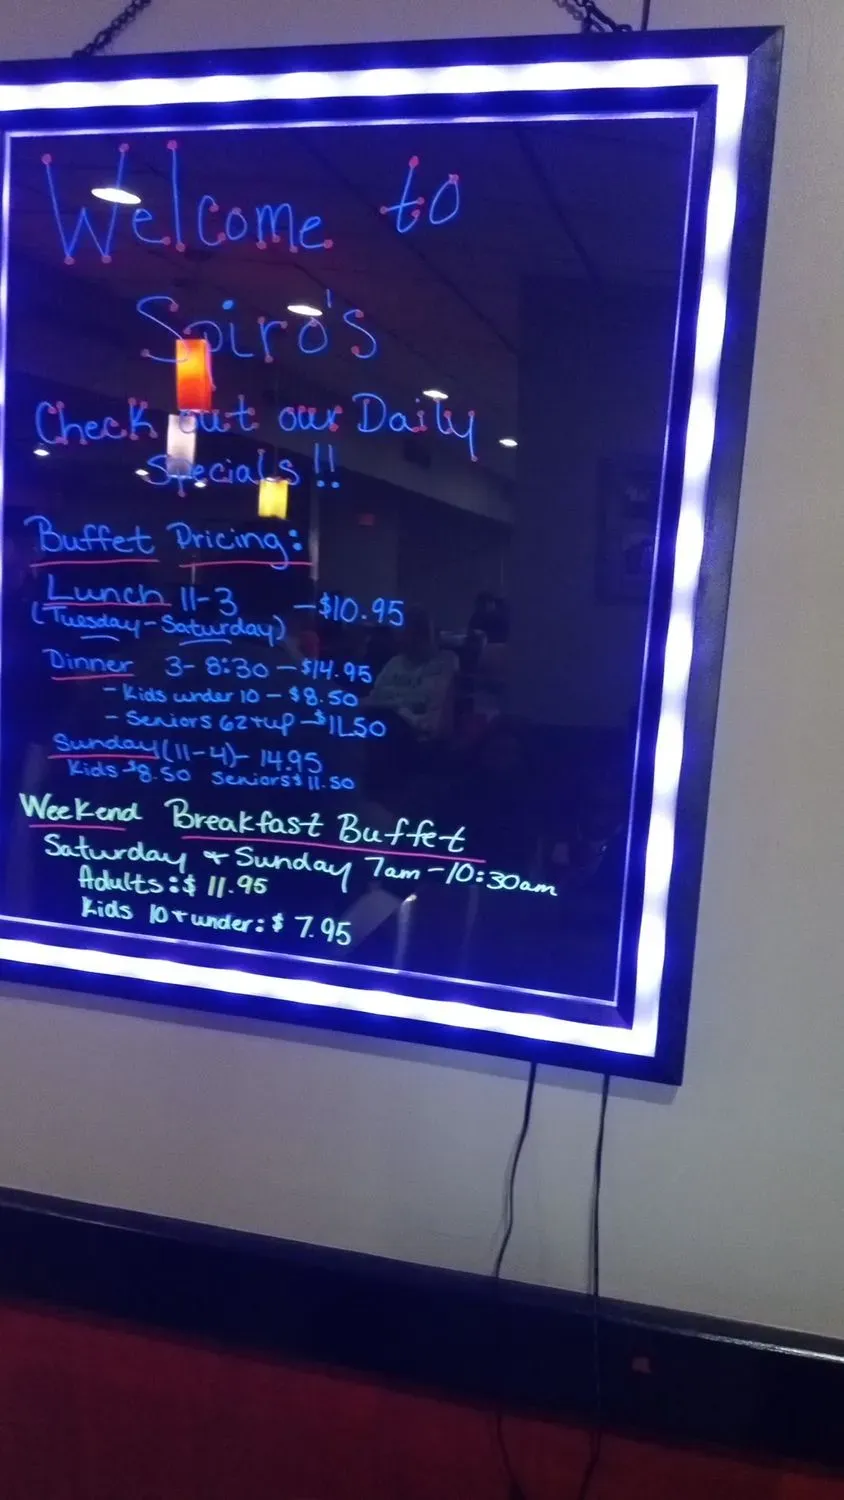 Welcome to
Spiro's
Check out our Daily
Specials!!
Buffet Pricing:
Lunch 11-3 -$10.95
(Tuesday-Saturday)
Dinner 3-8:30 -$14.95
- Kids under 10 - $8.50
- Seniors 62+up -$11.50
Sunday (11-4)- 14.95
Kids -$8.50 Seniors $11.50
Weekend Breakfast Buffet
Saturday + Sunday 7am -10:30am
Adults:$ 11.95
Kids 10+under:$ 7.95